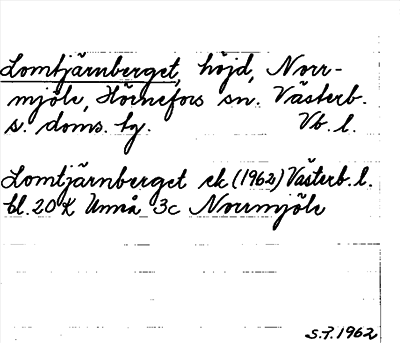 Lomtjärnberget, höjd, Norr-
mjöle, Hörnefors sn. Västerb.
s. doms. tg. Vb. l.
Lomtjärnberget ek (1962) Västerb. l.
bl. 20 K Umeå 3c Norrmjöle
S.F. 1962